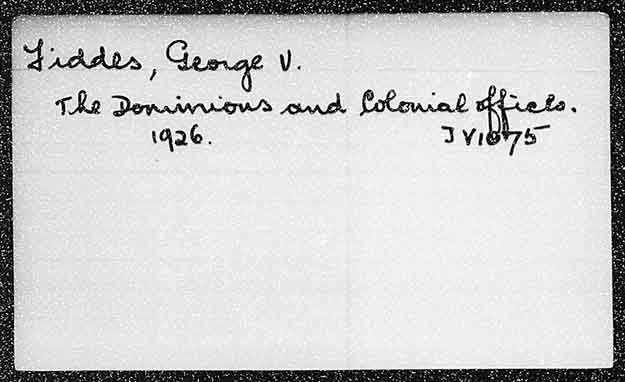 Fiddes, George V.
The Dominions and Colonial offices.
1926. JV1075